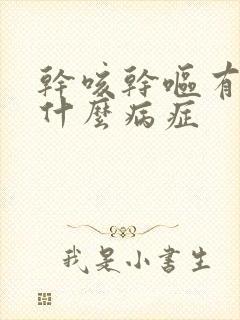 幹咳幹嘔有
什麼病症
我是小書生